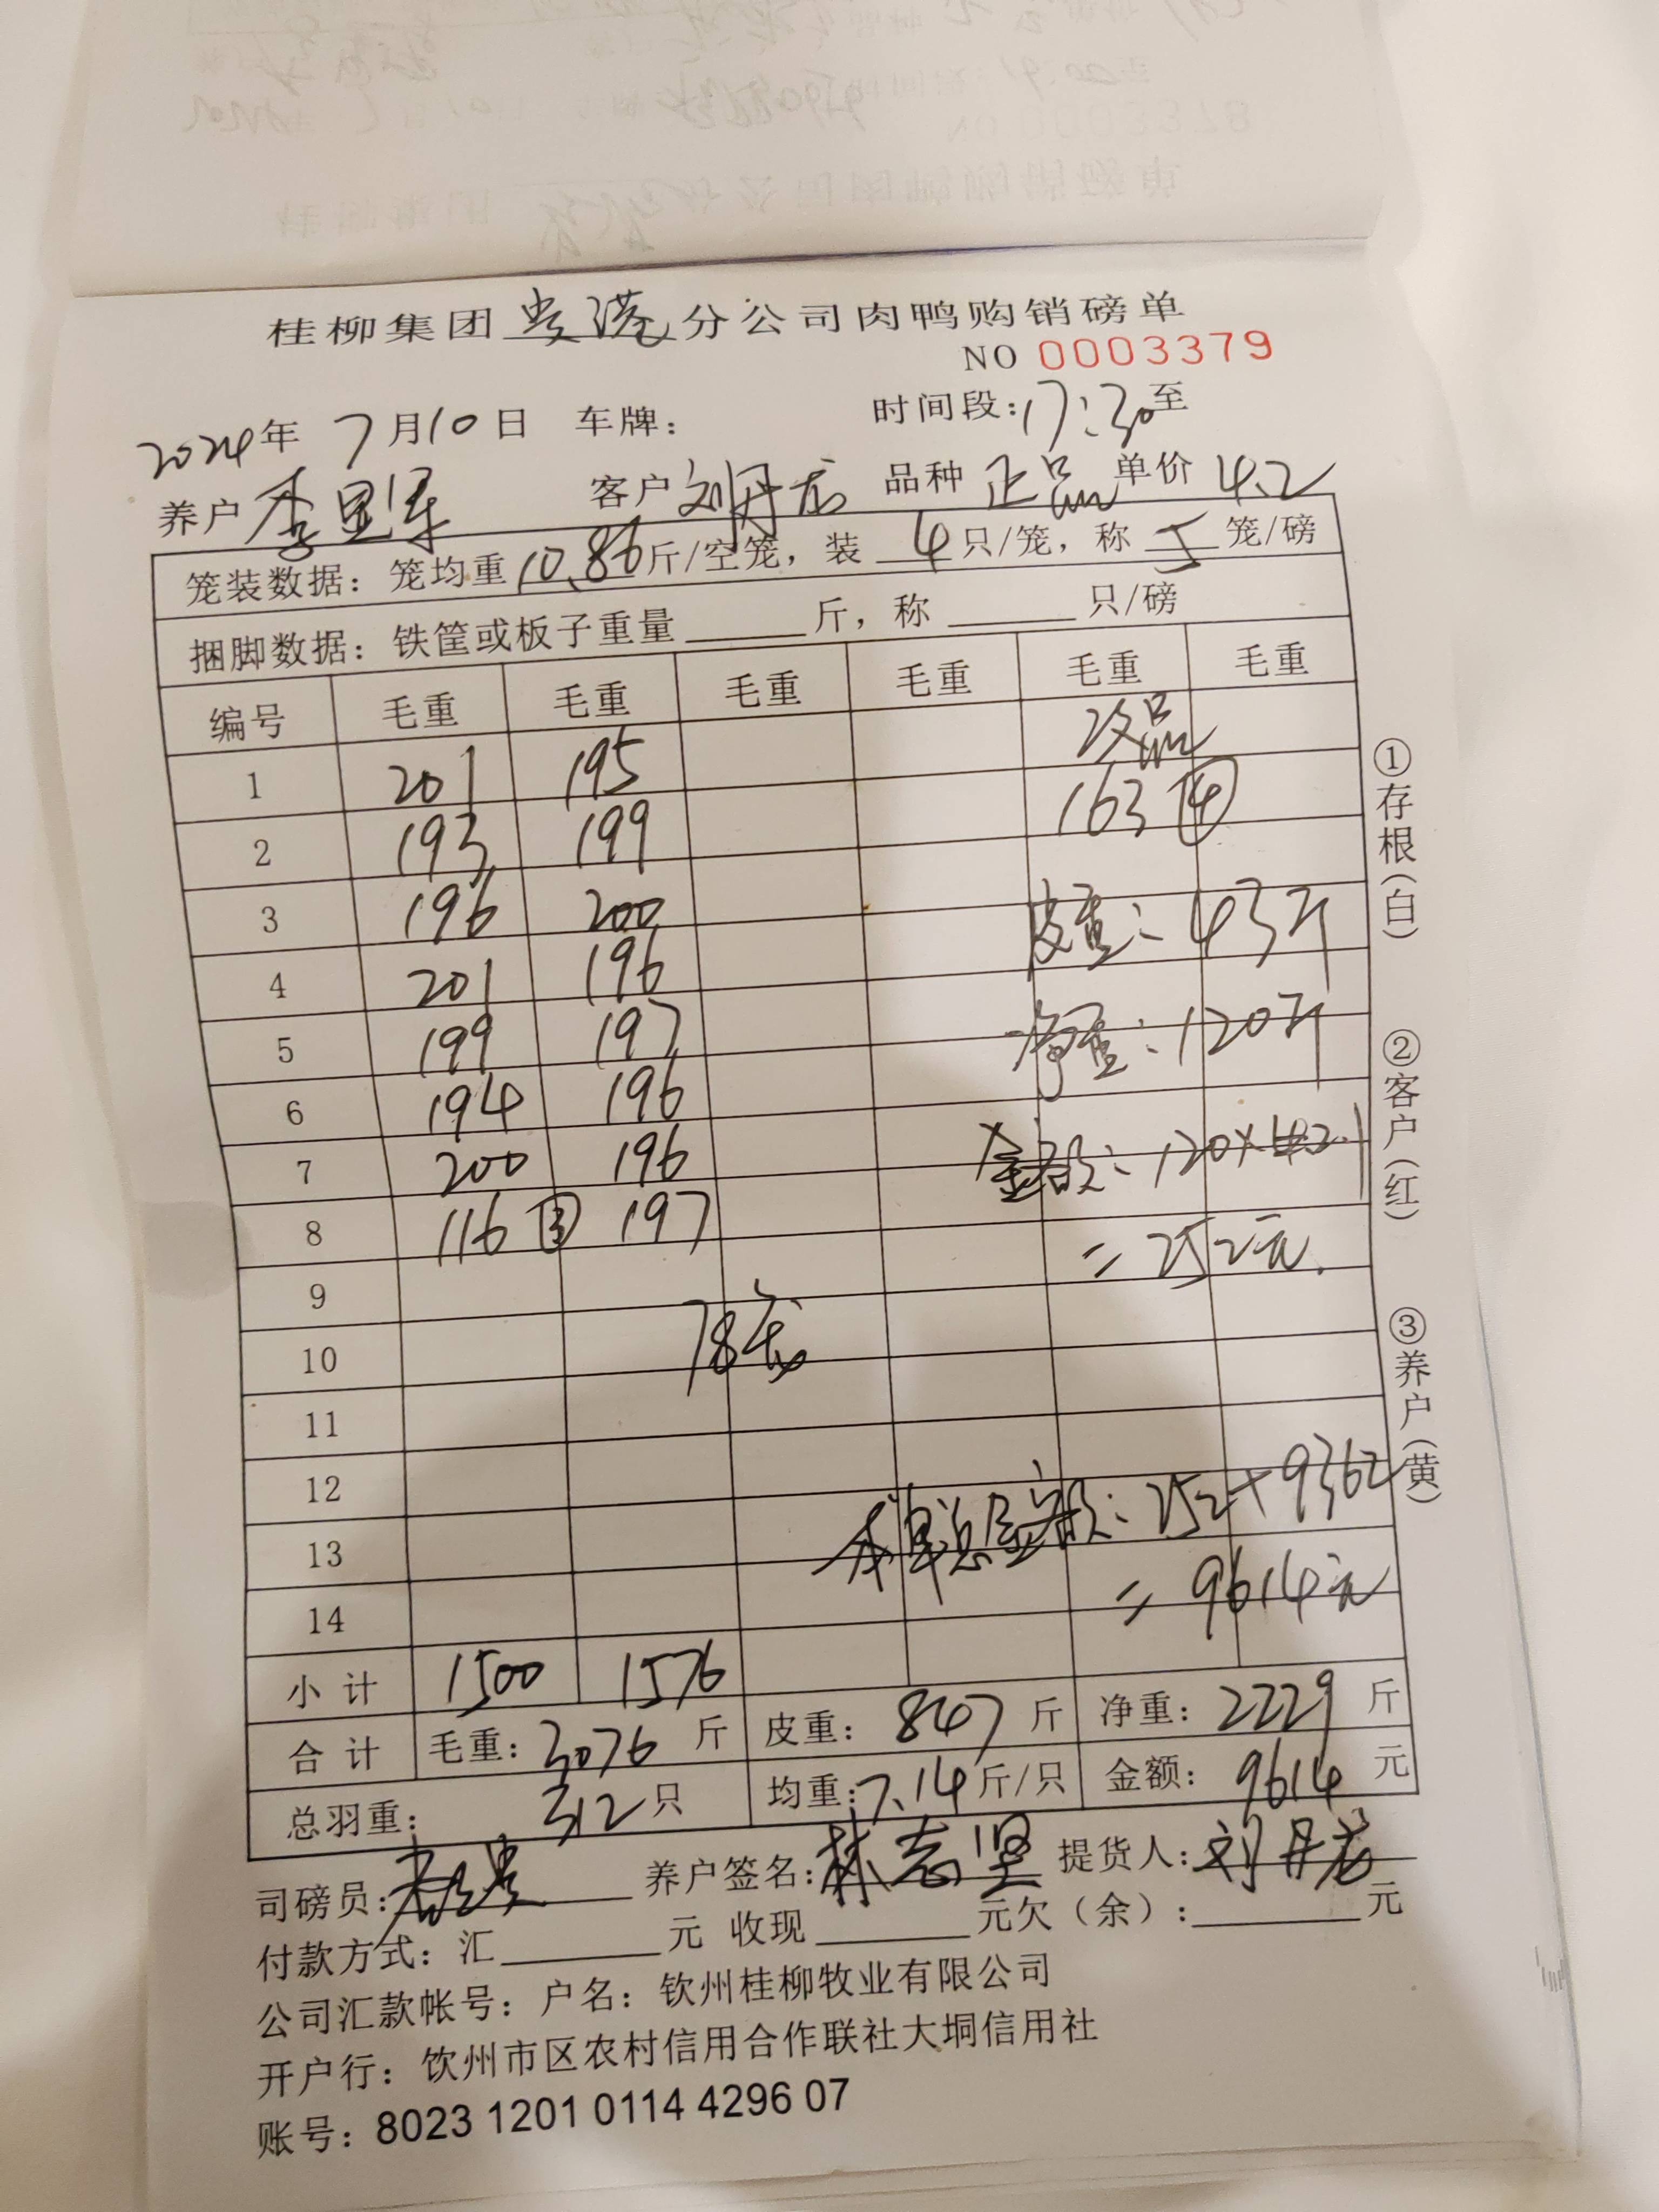 桂柳集团贵港分公司肉鸭购销磅单
NO 0003379
2024年 7月10日 车牌: 时间段:17:30至
养户 李 客户 刘丹龙 品种 正品 单价 4.2
笼装数据: 笼均重10.86斤/空笼, 装 4 只/笼, 称 5 笼/磅
捆脚数据: 铁筐或板子重量 斤, 称 只/磅
编号 毛重 毛重 毛重 毛重 毛重 毛重
次品
1 201 195
2 193 199 163 ④
3 196 200 皮重: 43斤
4 201 196
5 199 197 净重: 120斤
6 194 196
7 200 196 金额: 120×2.1
8 116 ③ 197 = 252元.
9
10 78笼
11
12
13 本单总金额: 252+9362
14 = 9614元
小计 1500 1576
合计 毛重: 3076 斤 皮重: 847 斤 净重: 2229 斤
总羽重: 312只 均重:7.14斤/只 金额: 9614 元
司磅员: 养户签名:林志坚 提货人:刘丹龙
付款方式: 汇 元 收现 元欠(余): 元
公司汇款帐号: 户名: 钦州桂柳牧业有限公司
开户行: 钦州市区农村信用合作联社大垌信用社
账号: 8023 1201 0114 4296 07
①存根(白) ②客户(红) ③养户(黄)